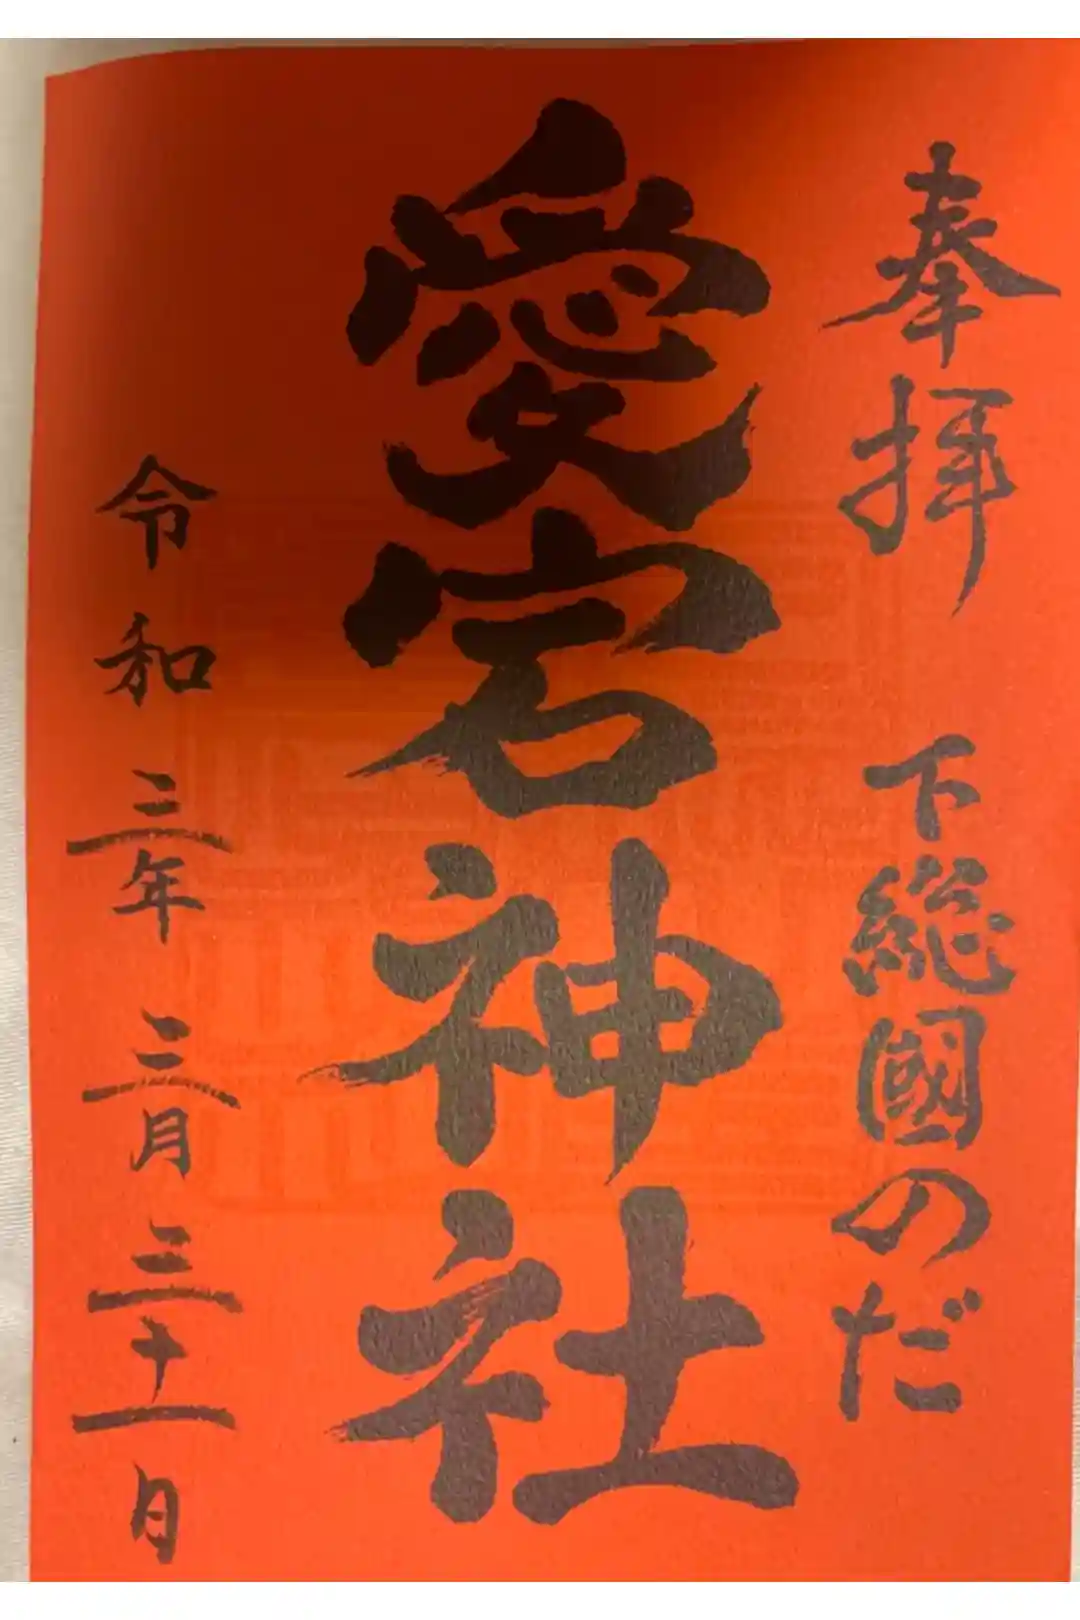 奉拝 下総國のだ
愛宕神社
令和三年三月三十一日